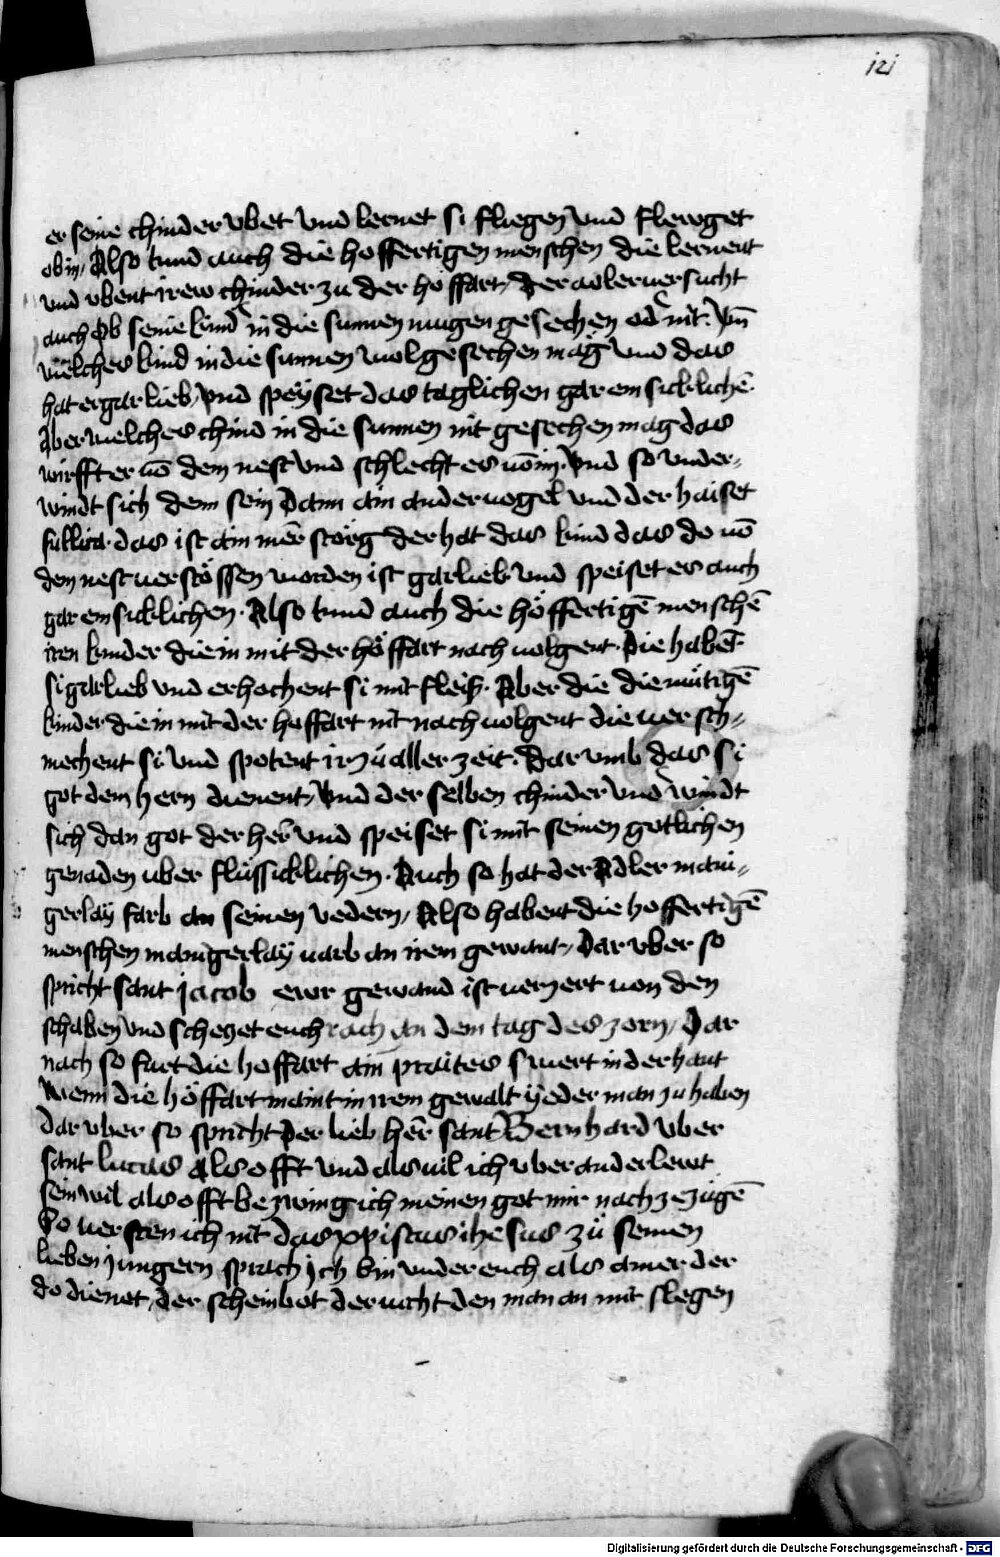 121
er seine chinder vbet vnd lernet si fliegen vnd flewget
ob in / Also tund auch die hoffertigen menschen die lernent
vnd vbent irew chinder zu der hoffart / Der adler uersucht
auch Ob seine kind in die sunnen mugen gesechen od nit. Vnd
welches kind in die sunnen wol gesechen mag vnd das
hat er gar lieb / vnd speÿset das taglichen gar emsicklichē
Aber welches chind in die sunnen nit gesechen mag das
wirfft er uō dem nest vnd schlecht es uō im. Vnd so vnder⸗
windt sich dem sein Dann ain ander uogel vnd der haiset
fullica. das ist ain mer storg der hat das kind das do uō
dem nest uerstössen worden ist gar lieb vnd speiset es auch
gar emsicklichen. Also tund auch die höffertigē menschē
iren kinder die in mit der höffart nach uolgent. Die habēt
si gar lieb vnd erhochent si mit fleiß. Aber die diemütigē
kinder die in mit der hoffart nit nach uolgent die uersch⸗
mechent si vnd spotent ir zu aller zeit. Dar vmb das si
got dem hern dienent / Vnd der selben chinder vnd windt
sich dan got der her vnd speiset si mit seinen gotlichen
genaden uber flüssicklichen. Auch so hat der Adler mani⸗
gerlaÿ farb an seinen vedern / Also habent die hoffertigē
menschen manigerlaÿ uarb an irem gewant / Dar vber so
spricht sant jacob ewr gewand ist uerzert uon den
schaben vnd schetzet euch rach an dem tag des zorn / Dar
nach so furt die hoffart ain praites swert in der hant
Wenn die höffart maint in irem gewalt ÿeder man zu haben
dar vber so spricht Der lieb her sant Bernhard vber
sant lucas Als offt vnd als uil ich vber ander lewt
sein wil als offt bezwing ich meinen got mir nach ze zügē
So uersten ich nit das xpistus ihesus zů seinen
lieben jungern sprach Ich bin vnder euch als ainer der
do dienet / der scheinbot der uicht den man an mit slegen
Digitalisierung gefördert durch die Deutsche Forschungsgemeinschaft - DFG